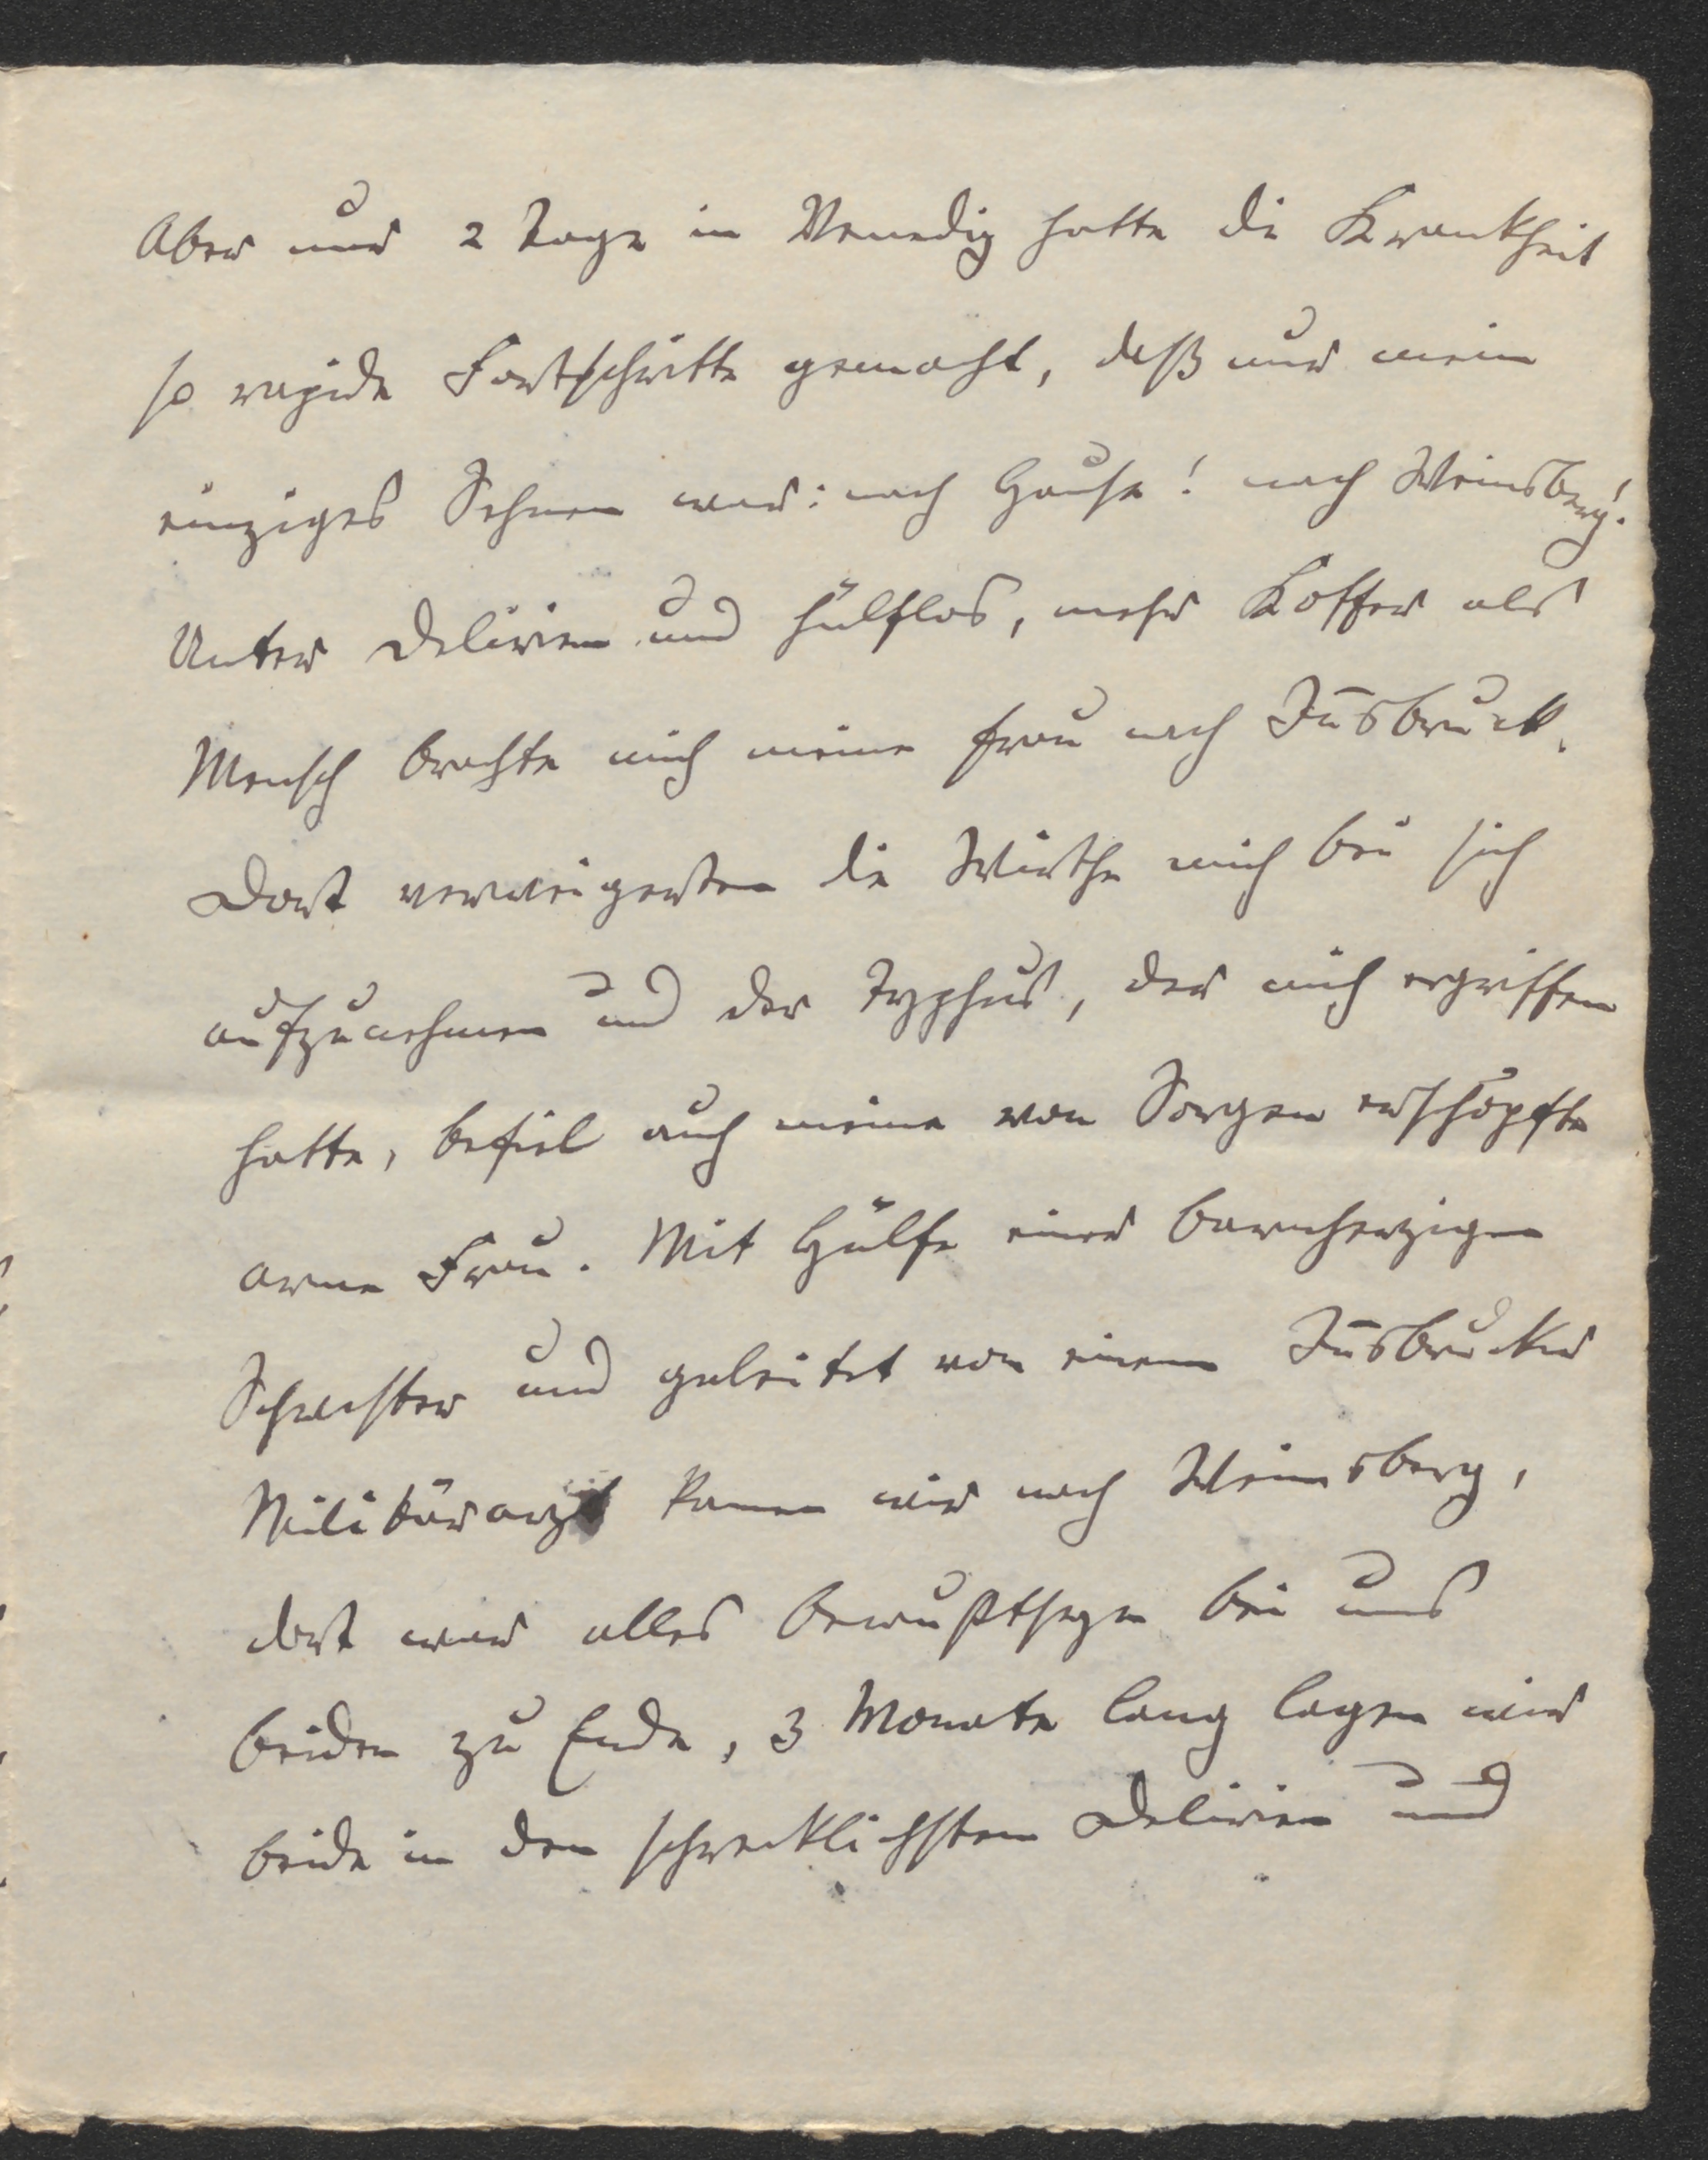 Aber nur 2 Tage in Venedig hatte die Krankheit
so rapide Fortschritte gemacht, daß nur mein
einziges Sehnen war: nach Hause! nach Weinsberg!
Unter Delirien und hülflos, mehr Koffer als
Mensch brachte mich meine Frau nach In̅sbruck.
Dort verweigerten die Wirthe mich bei sich
aufzunehmen und der Typhus, der mich ergriffen
hatte, befiel auch meine von Sorgen erschöpfte
arme Frau. Mit Hülfe einer barmherzigen
Schwester und geleitet von einem In̅sbrucker
Militärarzt kamen wir nach Weinsberg,
dort war alles Bewußtseyn bei uns
beiden zu Ende, 3 Monate lang lagen wir
beide in den schrecklichsten Delirien und